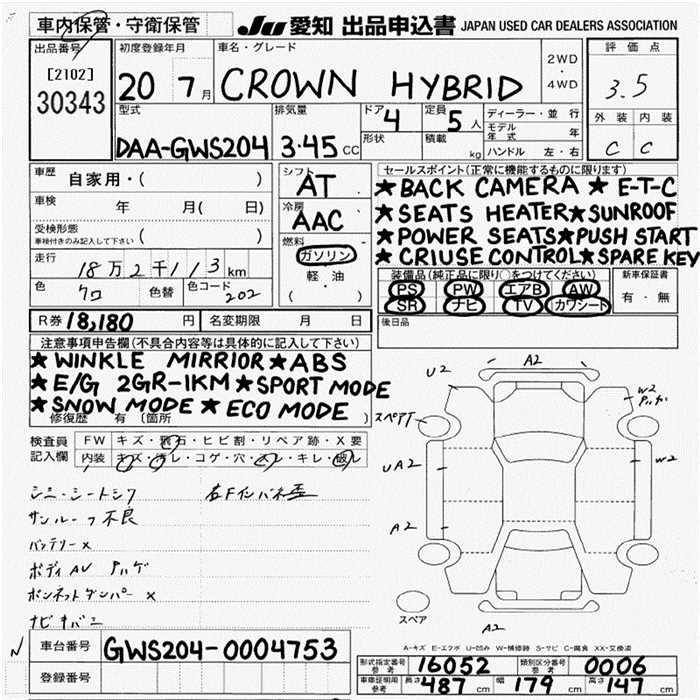 車内保管・守衛保管
JU 愛知 出品申込書 JAPAN USED CAR DEALERS ASSOCIATION
出品番号
[2102]
30343
初度登録年月
20 7月
車名・グレード
CROWN HYBRID
2WD
・
4WD
評価点
3.5
外装 内装
C C
型式
DAA-GWS204
排気量
3.45 CC
ドア 4
形状
定員 5人
積載 kg
ディーラー・並行
モデル年式 年
ハンドル 左・右
車歴 自家用・( )
車検 年 月( 日)
受検形態
車検付きのみ記入して下さい ( )
走行
18万2千113km
色 クロ 色替 色コード 202
R券 18,180 円 名変期限 月 日
シフト AT
冷房 AAC
燃料
ガソリン
軽・油
( )
セールスポイント(正常に機能するものに限ります)
★BACK CAMERA ★ E-T-C
★SEATS HEATER★SUNROOF
★POWER SEATS★PUSH START
★CRIUSE CONTROL★SPARE KEY
装備品(純正品に限り○をつけてください)
PS PW エアB AW
SR ナビ TV カワシート
新車保証書
有・無
後日品
注意事項申告欄(不具合内容等は具体的に記入して下さい)
★WINKLE MIRRIOR★ABS
★E/G 2GR-1KM★SPORT MODE
★SNOW MODE ★ECO MODE
修復歴 有 〔箇所 〕
検査員記入欄
FW キズ・飛石・ヒビ割・リペア跡・X要
内装 キズ・汚レ・コゲ・穴・スレ・キレ・破レ
シミ・シートシワ
サンルーフ不良
バッテリー×
ボディAU ハゲ
ボンネットダンパー ×
U2
A2
W2
スペアT
UA2
W2
A2
スペア
A2
A-キズ E-エクボ U-凹み W-補修跡 S-サビ C-腐食 XX-交換済
N
車台番号 GWS204-0004753
登録番号
形式指定番号 参考 16052 類別区分番号 参考 0006
車庫証明用 参考 長さ 487 cm 幅 179 cm 高さ 147 cm